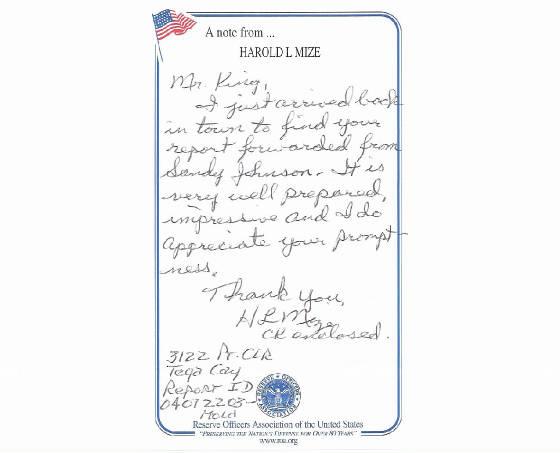 A note from ...
HAROLD L MIZE
Mr. King,
I just arrived back
in town to find your
report forwarded from
Sandy Johnson. It is
very well prepared,
impressive and I do
appreciate your prompt-
ness.
Thank you,
H L Mize
CK enclosed.
3122 Pt. CLR
Tega Cay
Report ID
04012203-
Mold
RESERVE OFFICERS ASSOCIATION
Reserve Officers Association of the United States
"PRESERVING THE NATION'S DEFENSE FOR OVER 80 YEARS"
www.roa.org